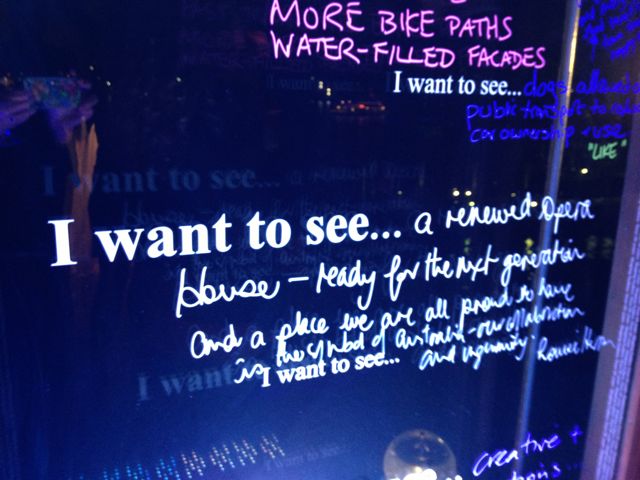 MORE BIKE PATHS
WATER-FILLED FACADES
I want to see... dogs allowed
public transport to
car ownership + use
"LIKE"
I want to see... a renewed Opera
House - ready for the next generation
and a place we are all proud to have
is the symbol of Australia - our collaboration
I want to see... and ingenuity.
creative +